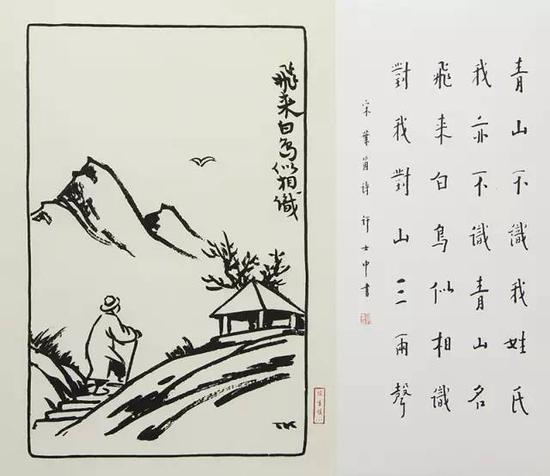 飛来白鳥似相識
TK
青山不識我姓氏
我亦不識青山名
飛来白鳥似相識
對我對山三兩聲
宋葉茵詩 許士中書